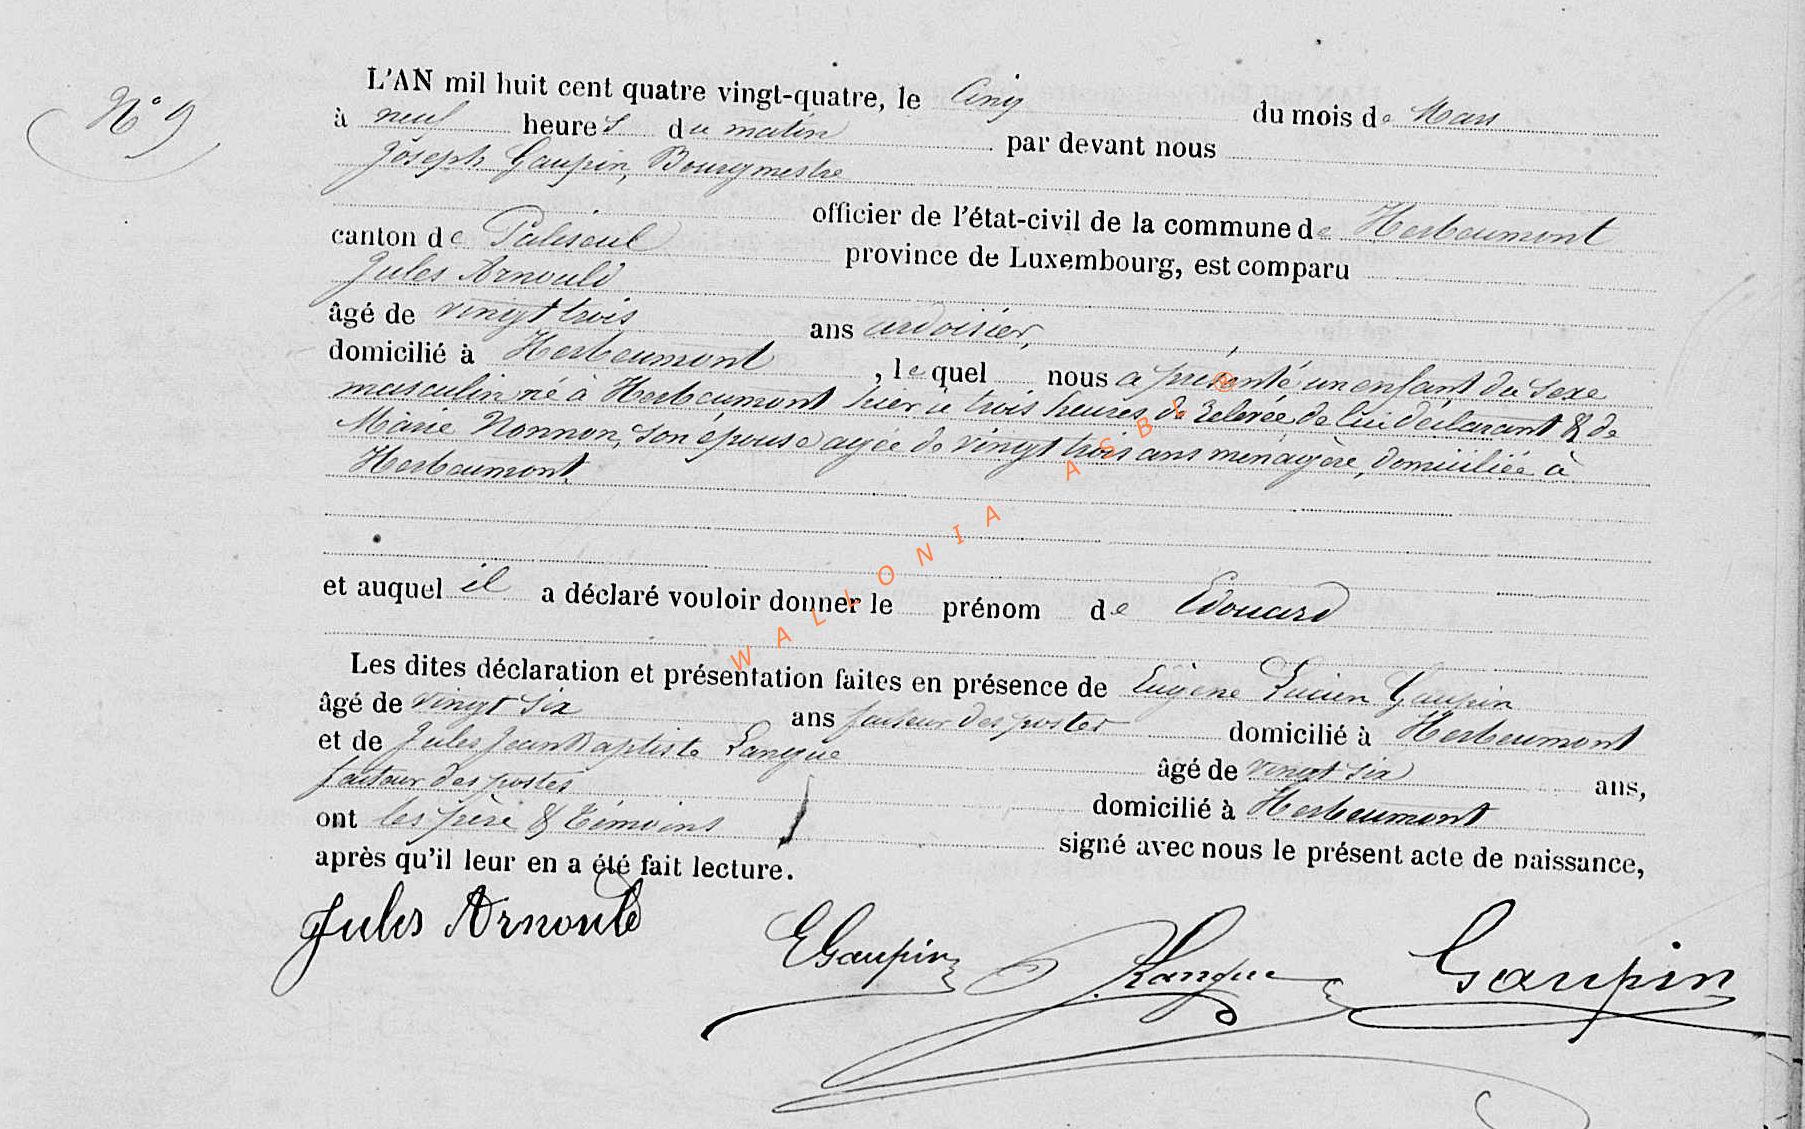 N° 9
L'AN mil huit cent quatre vingt-quatre, le Cinq du mois de Mars
à neuf heures du matin par devant nous
Joseph Gaupin, Bourgmestre
officier de l'état-civil de la commune de Herbeumont
canton de Paliseul province de Luxembourg, est comparu
Jules Arnould
âgé de vingt trois ans ardoisier,
domicilié à Herbeumont, le quel nous a présenté un enfant du sexe
masculin né à Herbeumont hier à trois heures de relevée de lui déclarant & de
Marie Nonnon, son épouse agée de vingt trois ans ménagère, domiciliée à
Herbeumont.
et auquel il a déclaré vouloir donner le prénom de Edouard
Les dites déclaration et présentation faites en présence de Eugène Lucien Gaupin
âgé de vingt six ans facteur des postes domicilié à Herbeumont
et de Jules Jean Baptiste Langue âgé de vingt six ans,
facteur des postes domicilié à Herbeumont
ont les père & témoins signé avec nous le présent acte de naissance,
après qu'il leur en a été fait lecture.
Jules Arnould EGaupin JLangue Gaupin
WALLONIA ASBL ®